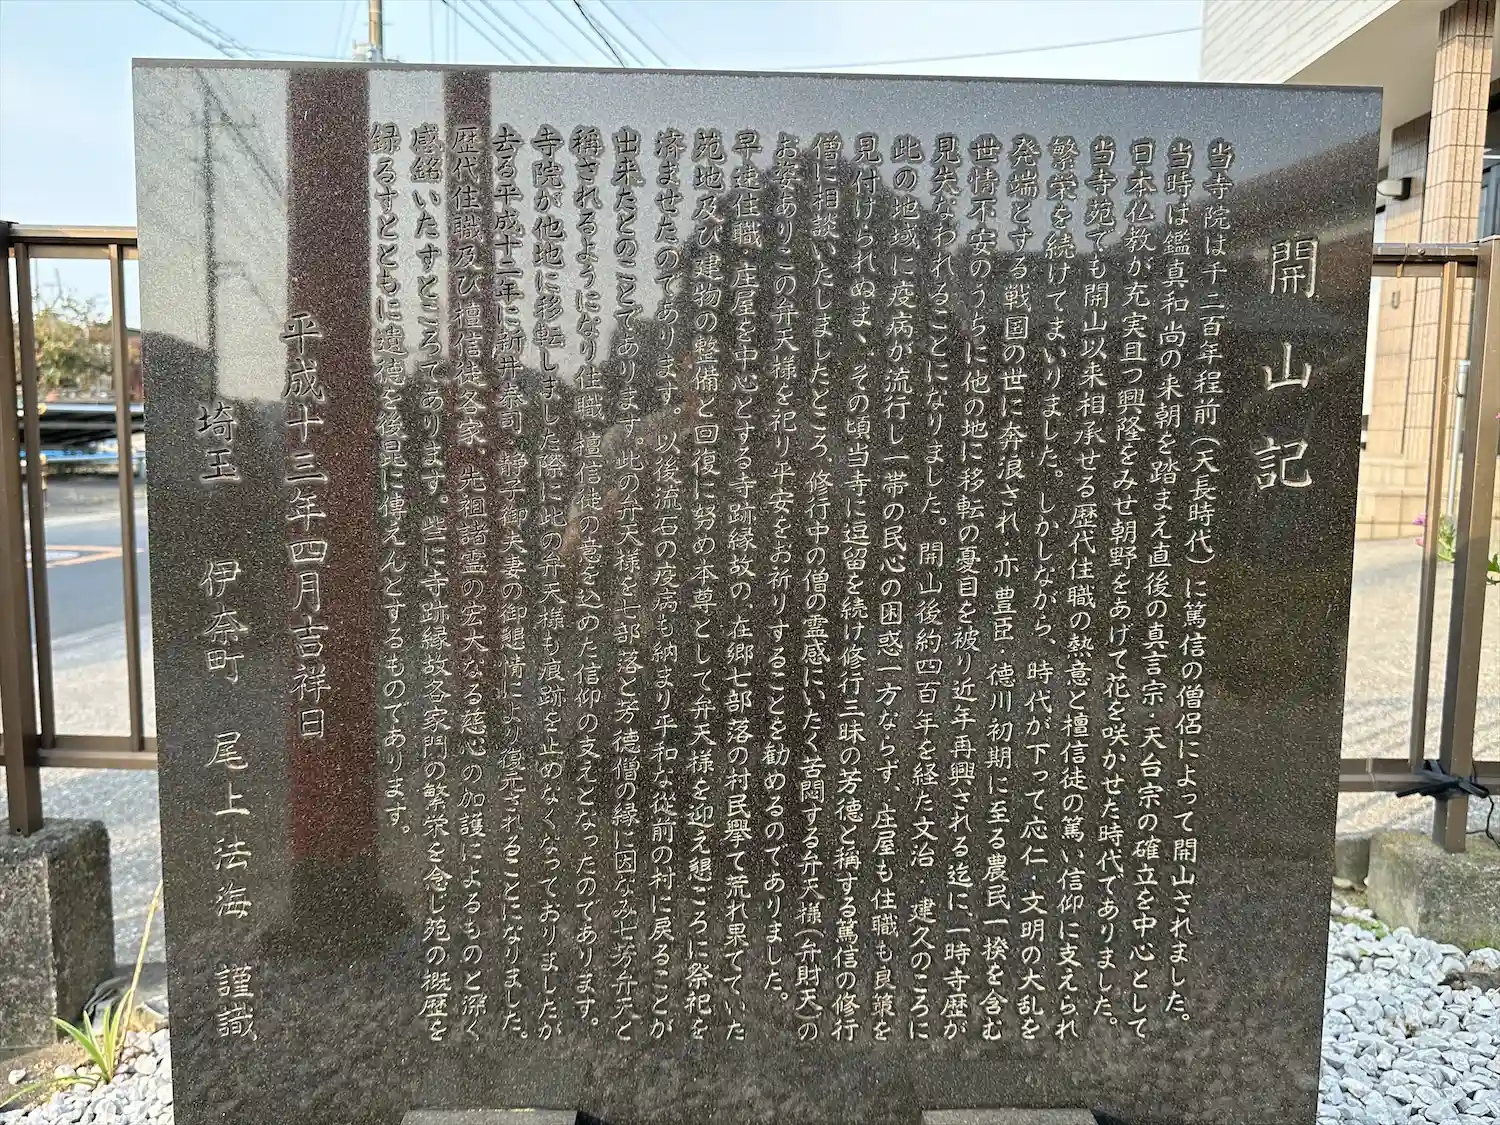 開山記
当寺院は千二百年程前（天長時代）に篤信の僧侶によって開山されました。
当時は鑑真和尚の来朝を踏まえ直後の真言宗・天台宗の確立を中心として
日本仏教が充実且つ興隆をみせ朝野をあげて花を咲かせた時代でありました。
当寺苑でも開山以来相承せる歴代住職の熱意と檀信徒の篤い信仰に支えられ
繁栄を続けてまいりました。しかしながら、時代が下って応仁・文明の大乱を
発端とする戦国の世に奔浪され、亦豊臣・徳川初期に至る農民一揆を含む
世情不安のうちに他の地に移転の憂目を被り近年再興される迄に、一時寺歴が
見失なわれることになりました。開山後約四百年を経た文治・建久のころに
此の地域に疫病が流行し一帯の民心の困惑一方ならず、庄屋も住職も良策を
見付けられぬまゝ、その頃当寺に逗留を続け修行三昧の芳徳と稱する篤信の修行
僧に相談いたしましたところ、修行中の僧の霊感にいたく苦悶する弁天様（弁財天）の
お姿ありこの弁天様を祀り平安をお祈りすることを勧めるのでありました。
早速住職・庄屋を中心とする寺跡縁故の、在郷七部落の村民擧て荒れ果てていた
苑地及び建物の整備と回復に努め本尊として弁天様を迎え懇ごろに祭祀を
済ませたのであります。以後流石の疫病も納まり平和な従前の村に戻ることが
出来たとのことであります。此の弁天様を七部落と芳徳僧の縁に因なみ七芳弁天と
稱されるようになり住職・檀信徒の意を込めた信仰の支えとなったのであります。
寺院が他地に移転しました際に此の弁天様も痕跡を止めなくなっておりましたが
去る平成十二年に新井泰司・静子御夫妻の御懇情により復元されることになりました。
歴代住職及び檀信徒各家、先祖諸霊の宏大なる慈心の加護によるものと深く
感銘いたすところであります。些に寺跡縁故各家門の繁栄を念じ苑の概歴を
録るすとともに遺徳を後昆に傳えんとするものであります。
平成十三年四月吉祥日
埼玉 伊奈町 尾上法海 謹識